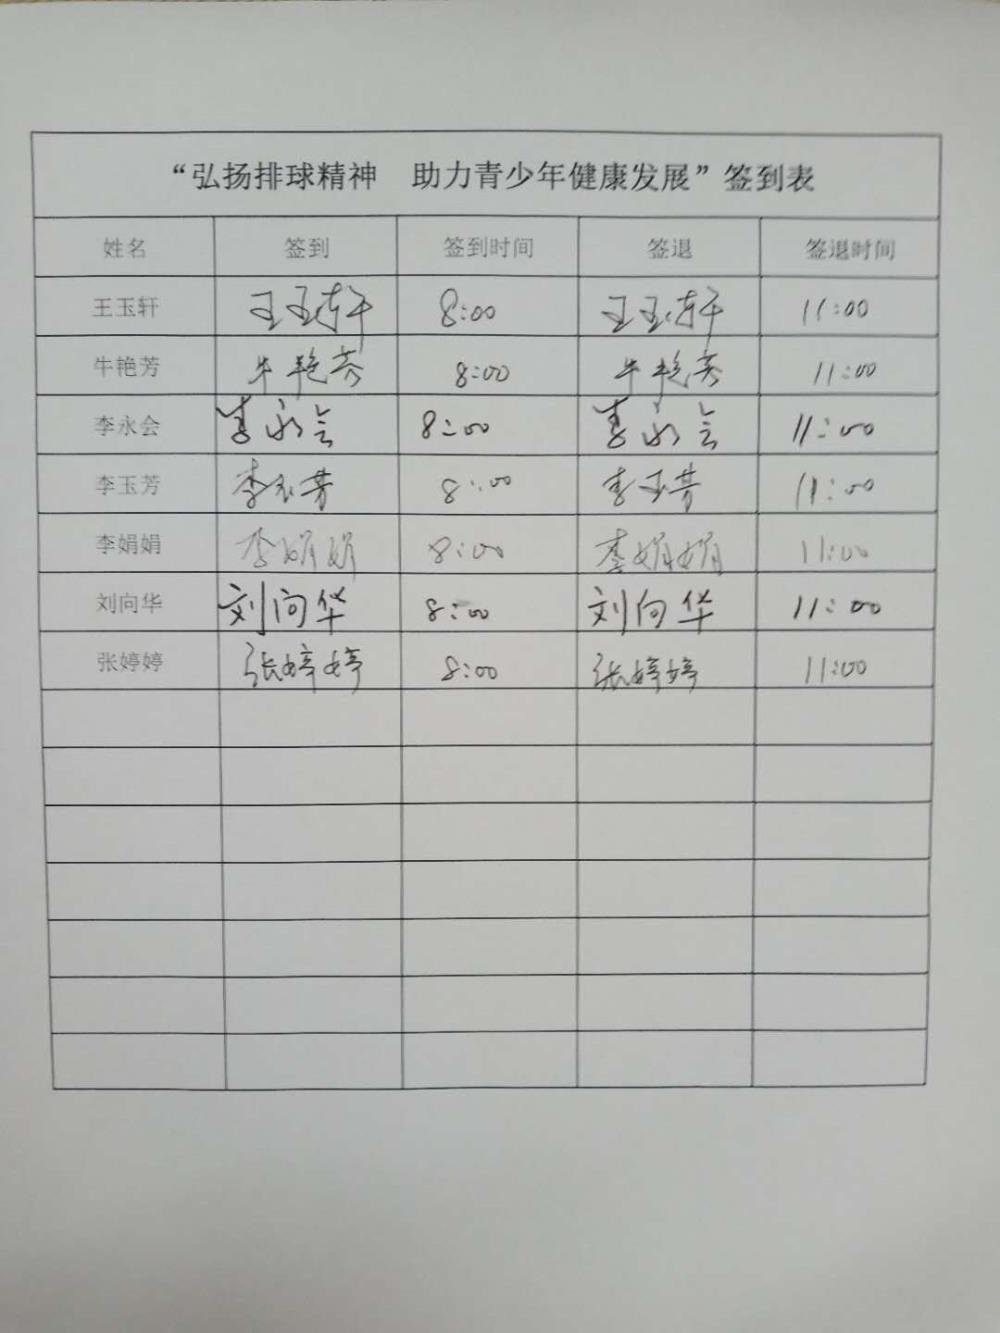 “弘扬排球精神　助力青少年健康发展”签到表
姓名 签到 签到时间 签退 签退时间
王玉轩 王玉轩 8:00 王玉轩 11:00
牛艳芳 牛艳芳 8:00 牛艳芳 11:00
李永会 李永会 8:00 李永会 11:00
李玉芳 李玉芳 8:00 李玉芳 11:00
李娟娟 李娟娟 8:00 李娟娟 11:00
刘向华 刘向华 8:00 刘向华 11:00
张婷婷 张婷婷 8:00 张婷婷 11:00